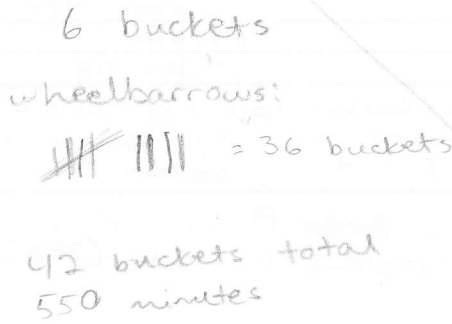 6 buckets
wheelbarrows:
= 36 buckets
42 buckets total
550 minutes